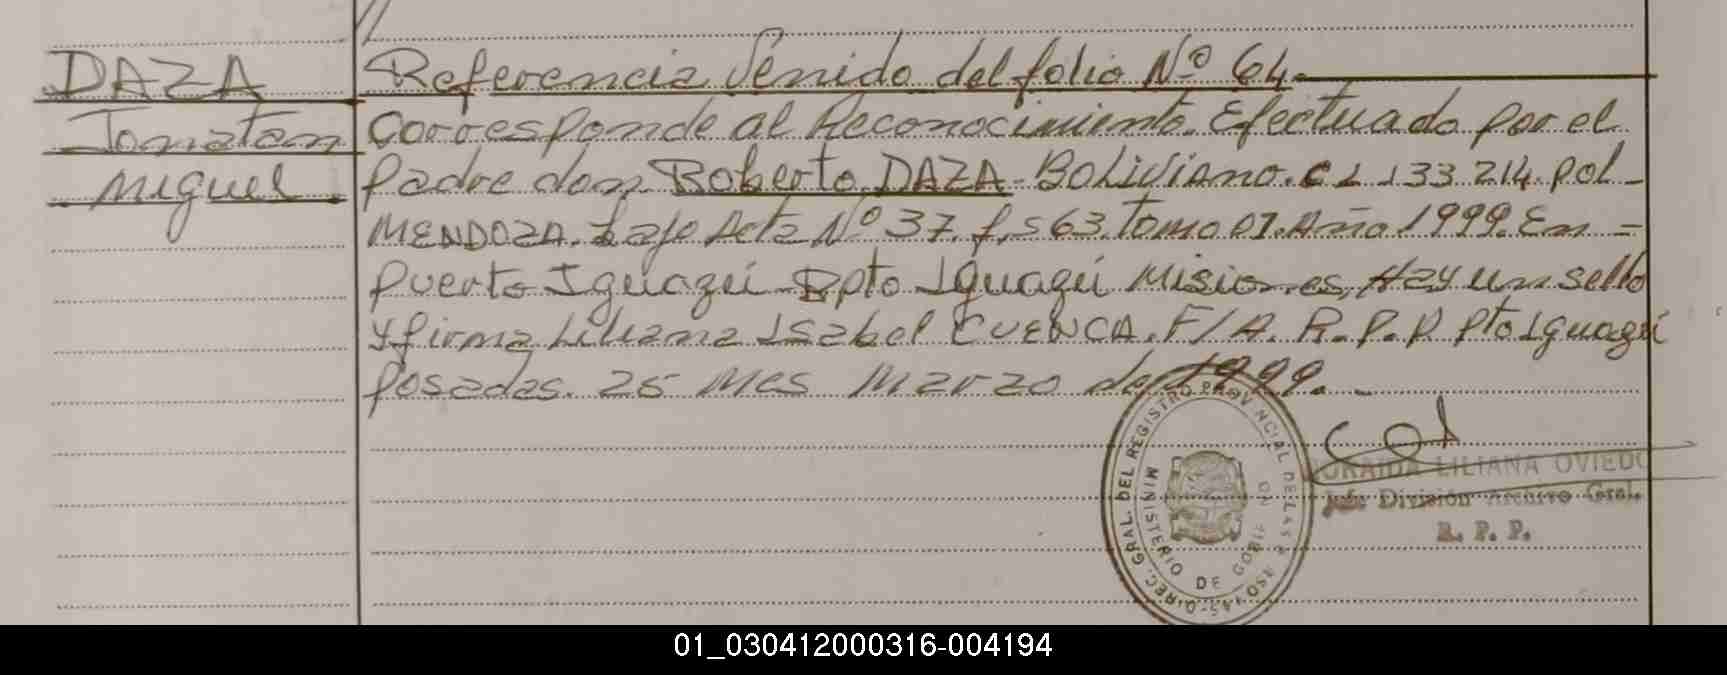 DAZA
Jonatan
Miguel.
Referencia Venido del folio Nº 64.
Corresponde al Reconocimiento. Efectuado por el
padre don Roberto DAZA - Boliviano. C I 133 214. pol -
MENDOZA. bajo Acta Nº 37. f,s 63. tomo 01. Año 1999. En =
Puerto Iguazú - Dpto Iguazú Misiones, Hay un sello
y firma Liliana Isabel CUENCA. F/A. R. P. P. Pto Iguazú
Posadas. 26 Mes Marzo de 1999. -
DIREC. GRAL. DEL REGISTRO PROVINCIAL DE LAS PERSONAS
MINISTERIO DE GOBIERNO
LILIANA OVIEDO
Jefe División Archivo Gral.
R. P. P.
01_030412000316-004194